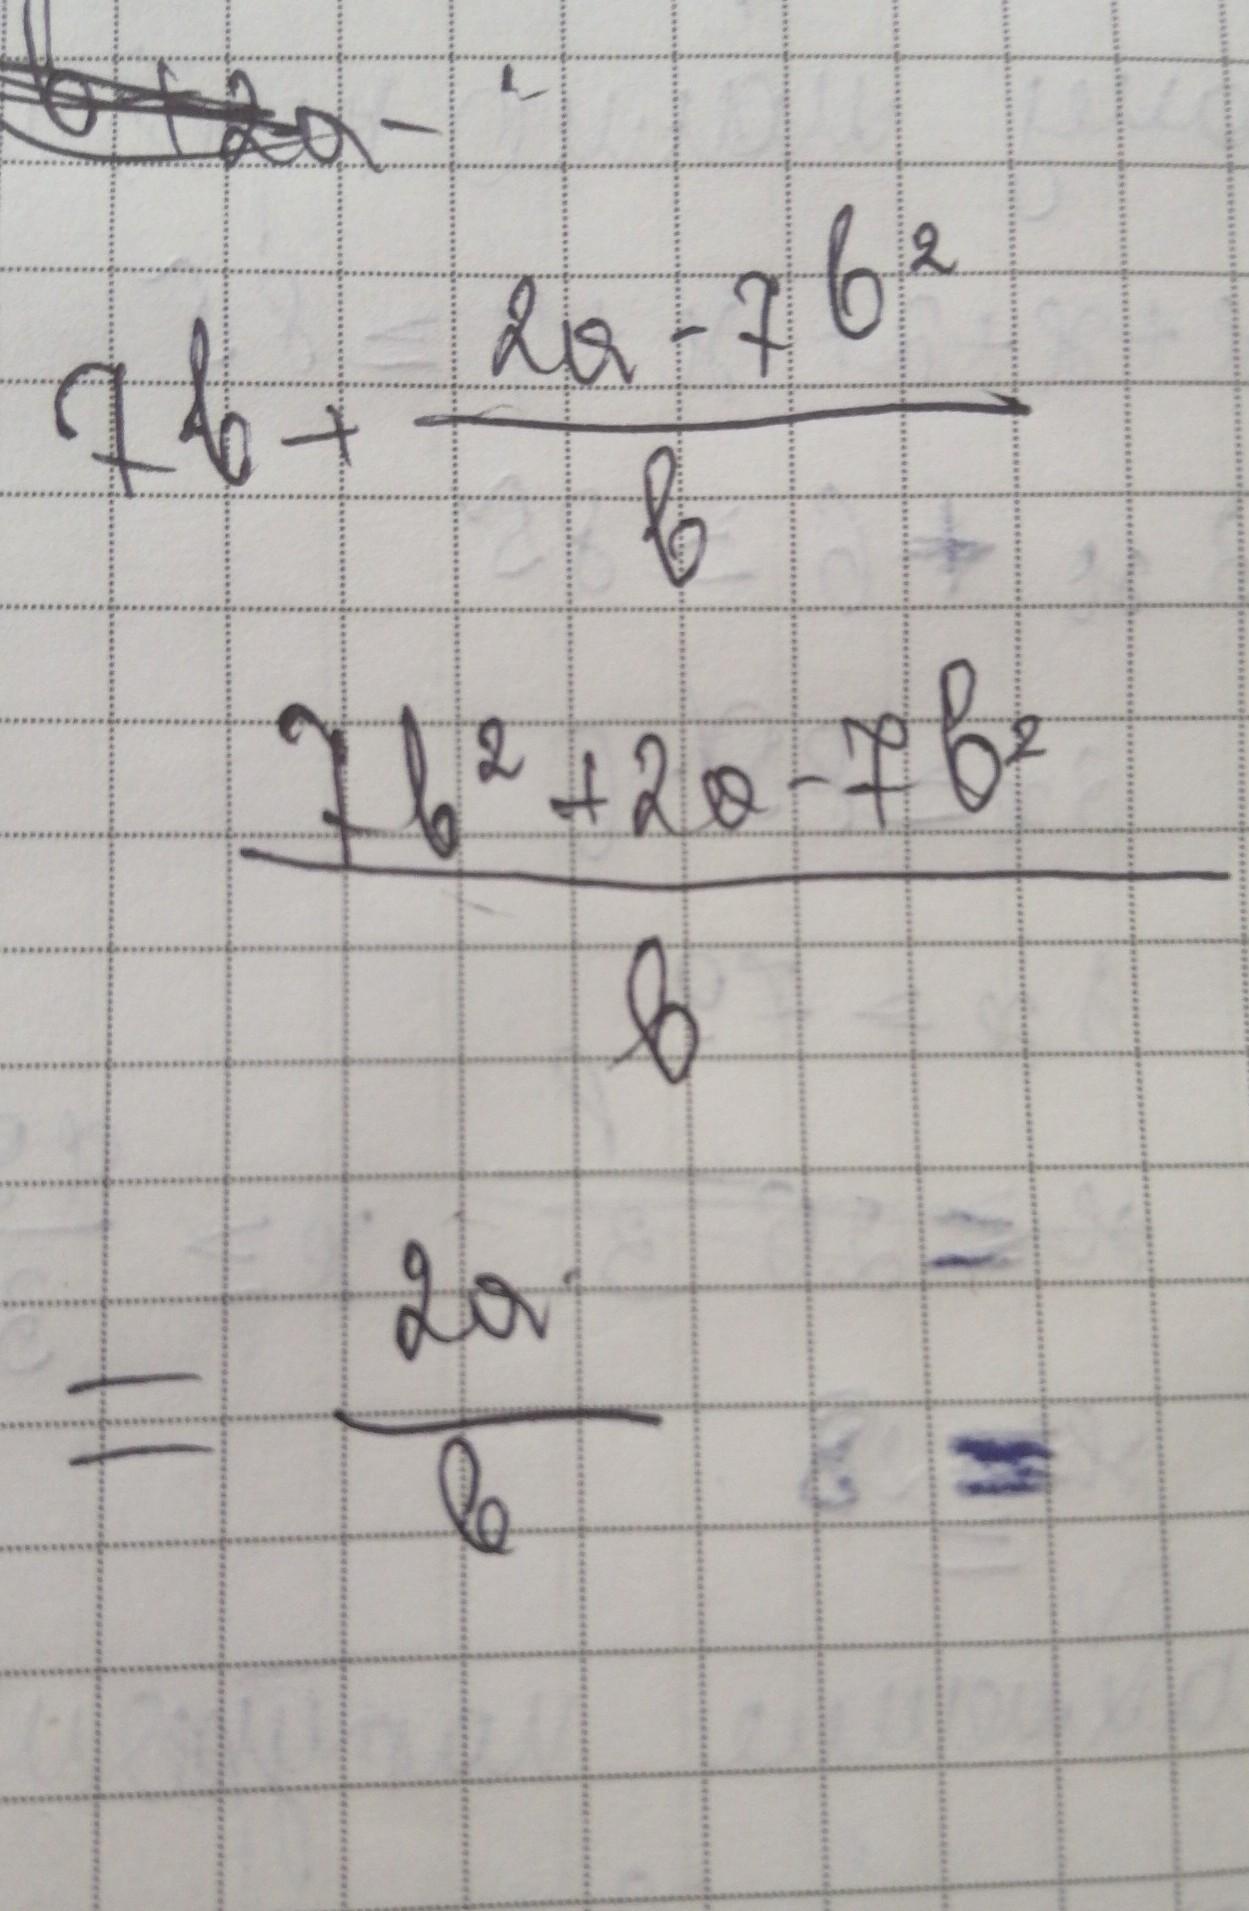 b+2a-
7b + \frac{2a-7b^2}{b}
\frac{7b^2+2a-7b^2}{b}
= \frac{2a}{b}